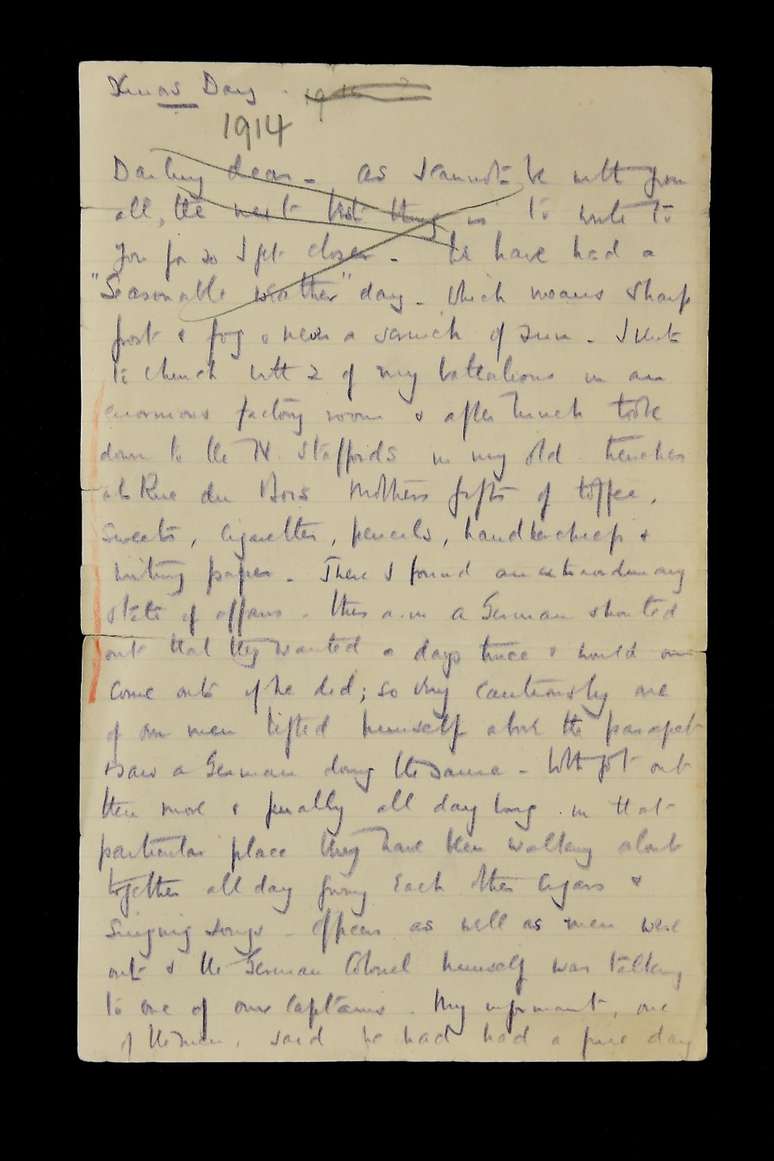 Xmas Day.
1914
Darling dear - as I cannot be with you
all, the next best thing is to write to
you for so I get closer - We have had a
"Seasonable weather" day - which means sharp
frost & fog & never a scrinch of sun - I went
to church with 2 of my battalions in an
enormous factory room & after lunch took
down to the N. Staffords in my old trenches
at Rue du Bois Mothers gifts of toffee,
sweets, cigarettes, pencils, handkerchiefs &
writing paper - There I found an extraordinary
state of affairs - this a.m. a German shouted
out that they wanted a days truce & would one
come out if he did; so very cautiously one
of our men lifted himself above the parapet
& saw a German doing the same - Both got out
then more & finally all day long in that
particular place they have been walking about
together all day giving each other cigars &
singing songs - Officers as well as men were
out & the German Colonel himself was talking
to one of our Captains. My informant, one
of the men, said he had had a fine day